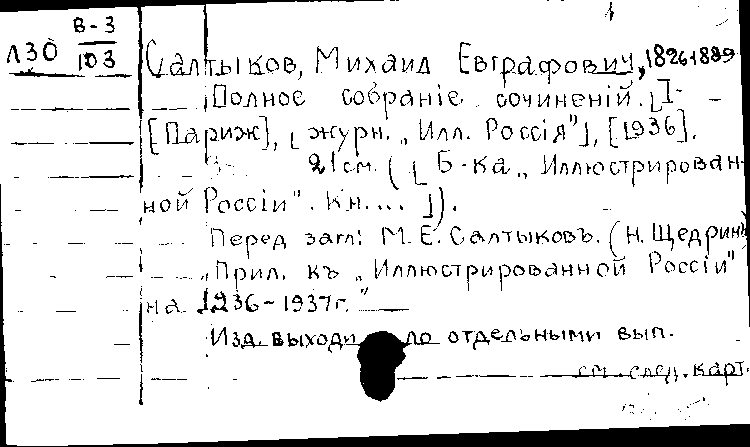 В-3
Л30 103
Салтыков, Михаил Евграфович, 1826-1889
Полное собраніе сочиненій. [I-
[Париж], [журн. „Илл. Россія"], [1936].
21 см. ([Б-ка „Иллюстрирован-
ной Россіи". Кн. ... ]).
Перед загл: М. Е. Салтыковъ. (Н. Щедринъ)
„Прил. къ „Иллюстрированной Россіи"
на 1936-1937г."
Изд. выходи ло отдельными вып.
см. след. карт.